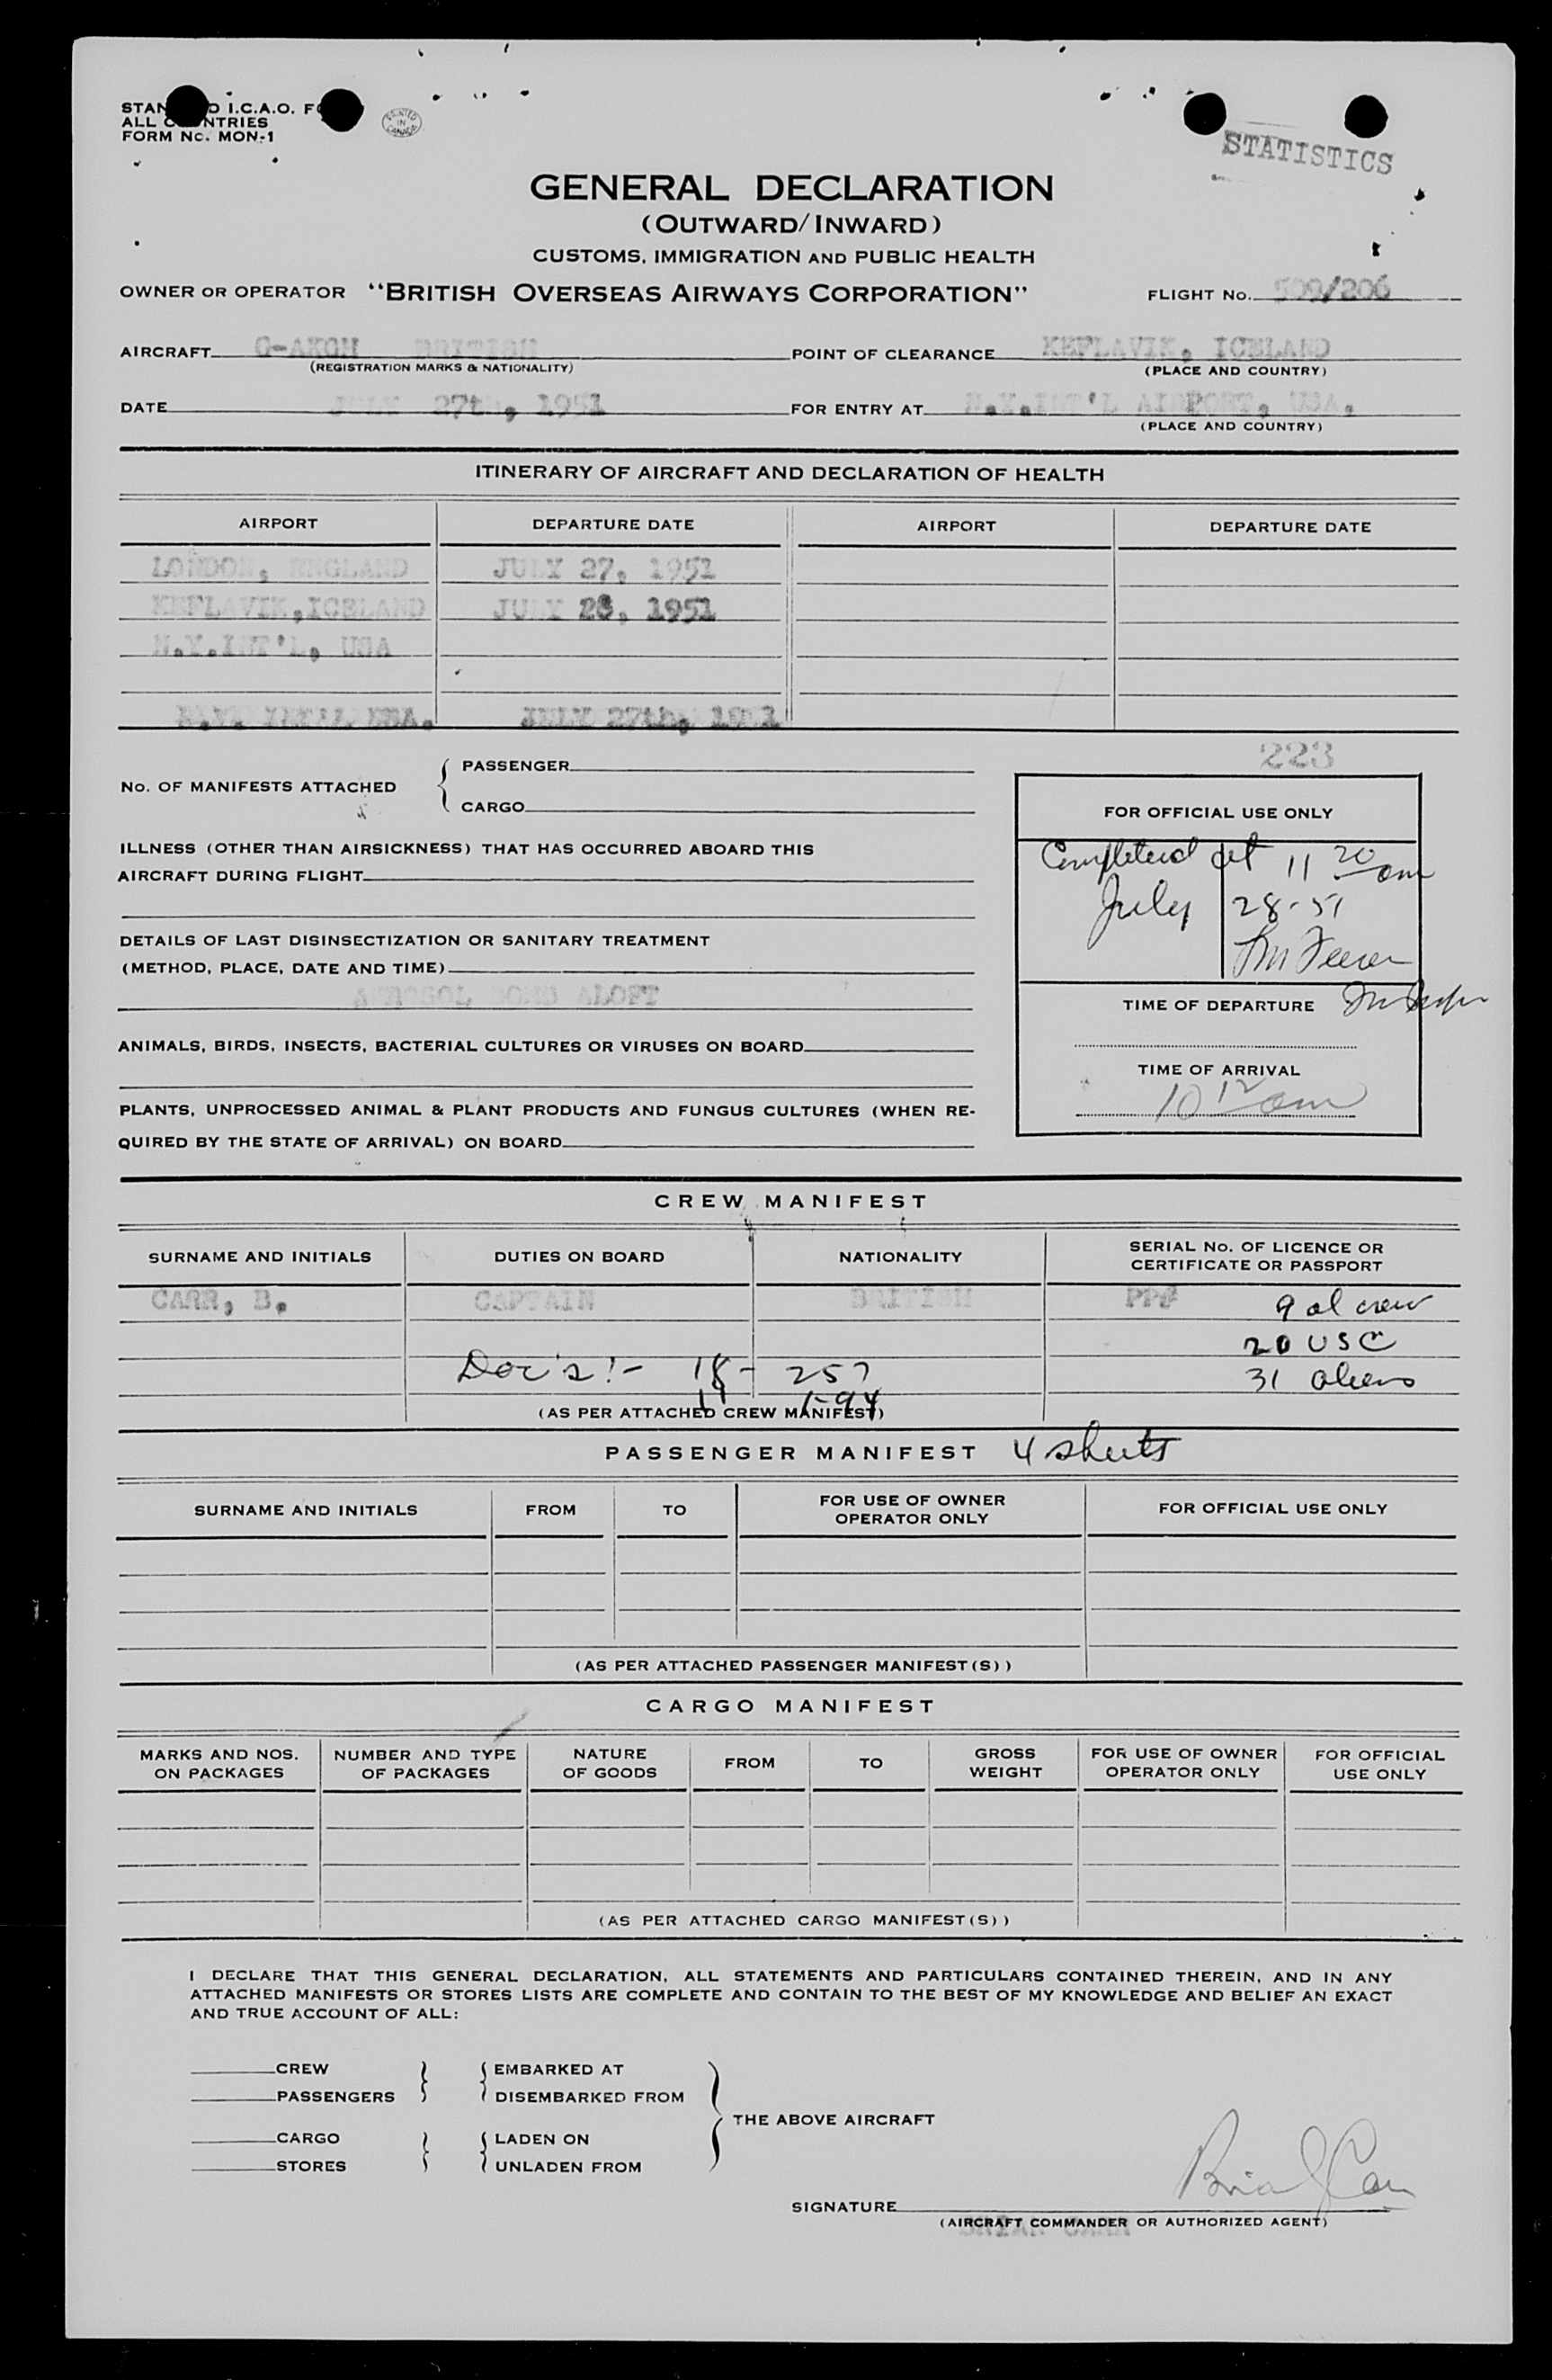 STAN D I.C.A.O. F
ALL C NTRIES
FORM No. MON-1
PRINTED IN CANADA
STATISTICS
GENERAL DECLARATION
(OUTWARD/INWARD)
CUSTOMS, IMMIGRATION AND PUBLIC HEALTH
OWNER OR OPERATOR "BRITISH OVERSEAS AIRWAYS CORPORATION" FLIGHT No. 509/206
AIRCRAFT G-AKGM BRITISH POINT OF CLEARANCE KEFLAVIK, ICELAND
(REGISTRATION MARKS & NATIONALITY) (PLACE AND COUNTRY)
DATE JULY 27th, 1951 FOR ENTRY AT N.Y.INT'L AIRPORT, USA.
(PLACE AND COUNTRY)
ITINERARY OF AIRCRAFT AND DECLARATION OF HEALTH
AIRPORT DEPARTURE DATE AIRPORT DEPARTURE DATE
LONDON, ENGLAND JULY 27, 1951
KEFLAVIK,ICELAND JULY 28, 1951
N.Y.INT'L, USA
N.Y. INT'L USA. JULY 27th, 1951
223
No. OF MANIFESTS ATTACHED { PASSENGER
CARGO
FOR OFFICIAL USE ONLY
Completed at 11 20 am
July 28-51
ILLNESS (OTHER THAN AIRSICKNESS) THAT HAS OCCURRED ABOARD THIS
AIRCRAFT DURING FLIGHT
DETAILS OF LAST DISINSECTIZATION OR SANITARY TREATMENT
(METHOD, PLACE, DATE AND TIME)
AEROSOL BOMB ALOFT
TIME OF DEPARTURE
ANIMALS, BIRDS, INSECTS, BACTERIAL CULTURES OR VIRUSES ON BOARD
TIME OF ARRIVAL
10 12 am
PLANTS, UNPROCESSED ANIMAL & PLANT PRODUCTS AND FUNGUS CULTURES (WHEN RE-
QUIRED BY THE STATE OF ARRIVAL) ON BOARD
CREW MANIFEST
SURNAME AND INITIALS DUTIES ON BOARD NATIONALITY SERIAL No. OF LICENCE OR
CERTIFICATE OR PASSPORT
CARR, B. CAPTAIN BRITISH PP# 9 al crew
20 USC
Doc's:- 18- 257 31 aliens
11 I-94
(AS PER ATTACHED CREW MANIFEST)
PASSENGER MANIFEST 4 sheets
SURNAME AND INITIALS FROM TO FOR USE OF OWNER
OPERATOR ONLY FOR OFFICIAL USE ONLY
(AS PER ATTACHED PASSENGER MANIFEST(S))
CARGO MANIFEST
MARKS AND NOS.
ON PACKAGES NUMBER AND TYPE
OF PACKAGES NATURE
OF GOODS FROM TO GROSS
WEIGHT FOR USE OF OWNER
OPERATOR ONLY FOR OFFICIAL
USE ONLY
(AS PER ATTACHED CARGO MANIFEST(S))
I DECLARE THAT THIS GENERAL DECLARATION, ALL STATEMENTS AND PARTICULARS CONTAINED THEREIN, AND IN ANY
ATTACHED MANIFESTS OR STORES LISTS ARE COMPLETE AND CONTAIN TO THE BEST OF MY KNOWLEDGE AND BELIEF AN EXACT
AND TRUE ACCOUNT OF ALL:
CREW } { EMBARKED AT
PASSENGERS DISEMBARKED FROM
THE ABOVE AIRCRAFT
CARGO } { LADEN ON
STORES UNLADEN FROM
SIGNATURE Brian Carr
(AIRCRAFT COMMANDER OR AUTHORIZED AGENT)
BRIAN CARR